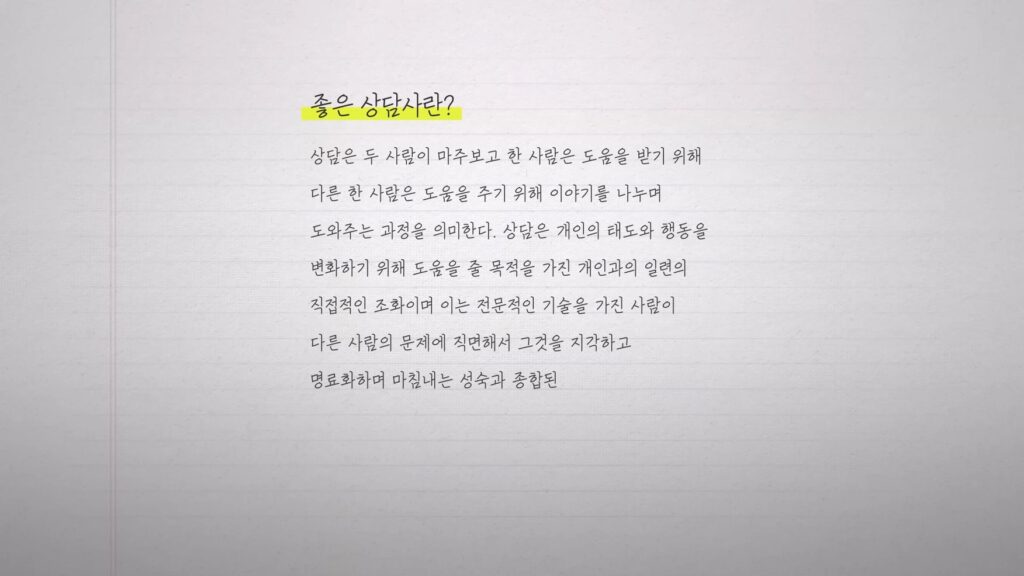 좋은 상담사란?
상담은 두 사람이 마주보고 한 사람은 도움을 받기 위해
다른 한 사람은 도움을 주기 위해 이야기를 나누며
도와주는 과정을 의미한다. 상담은 개인의 태도와 행동을
변화하기 위해 도움을 줄 목적을 가진 개인과의 일련의
직접적인 조화이며 이는 전문적인 기술을 가진 사람이
다른 사람의 문제에 직면해서 그것을 지각하고
명료화하며 마침내는 성숙과 종합된